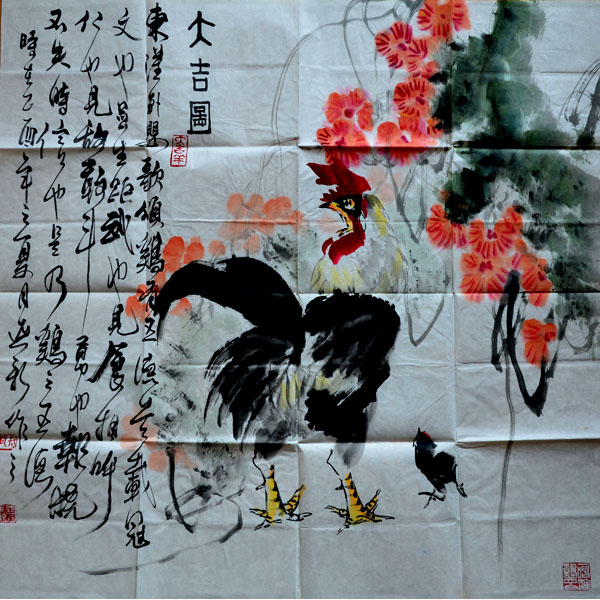 大吉圖
東漢歌頌鷄有五德首戴冠
文也足生距武也見食相呼
仁也見敵鬥勇也報曉
不失時信也是乃鷄之五德
時在乙酉年夏月作之